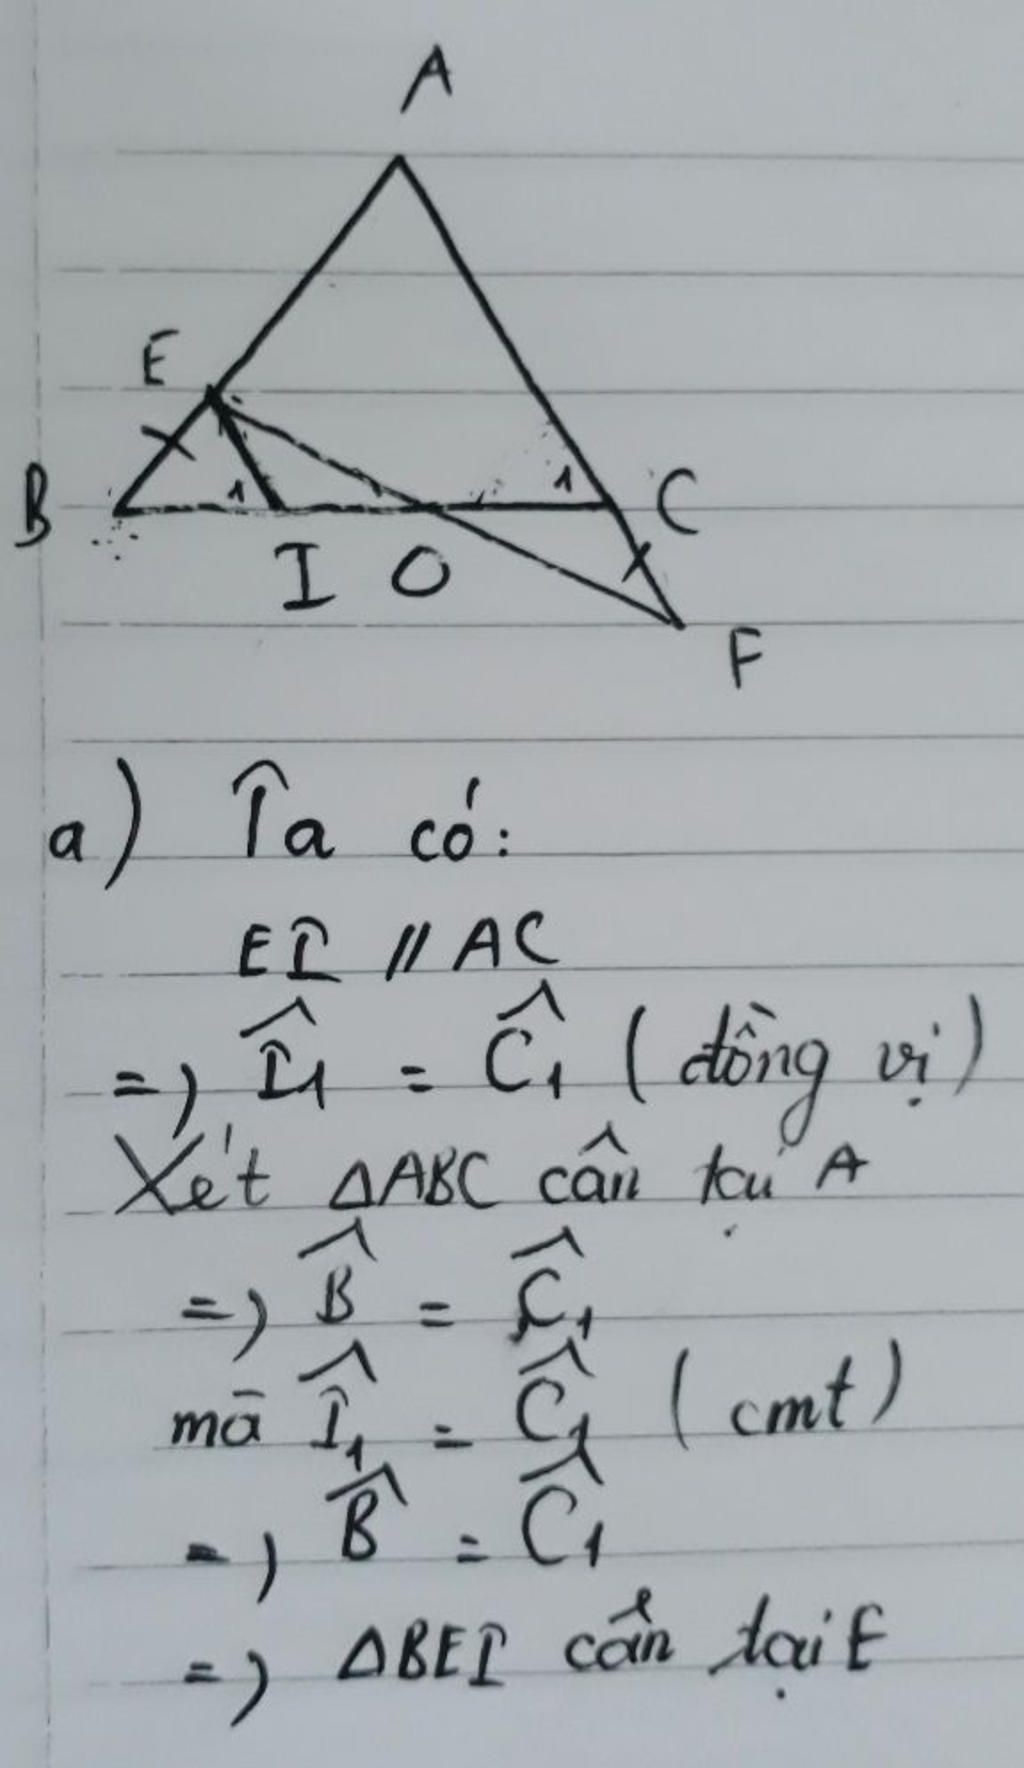 A
E
B
1
1
C
I O
F
a) Ta có:
EI // AC
=) Î1 = Ĉ1 (đồng vị)
Xét ΔABC cân tại A
=) B̂ = Ĉ1
mà Î1 = Ĉ1 (cmt)
=) B̂ = Ĉ1
=) ΔBEI cân tại E